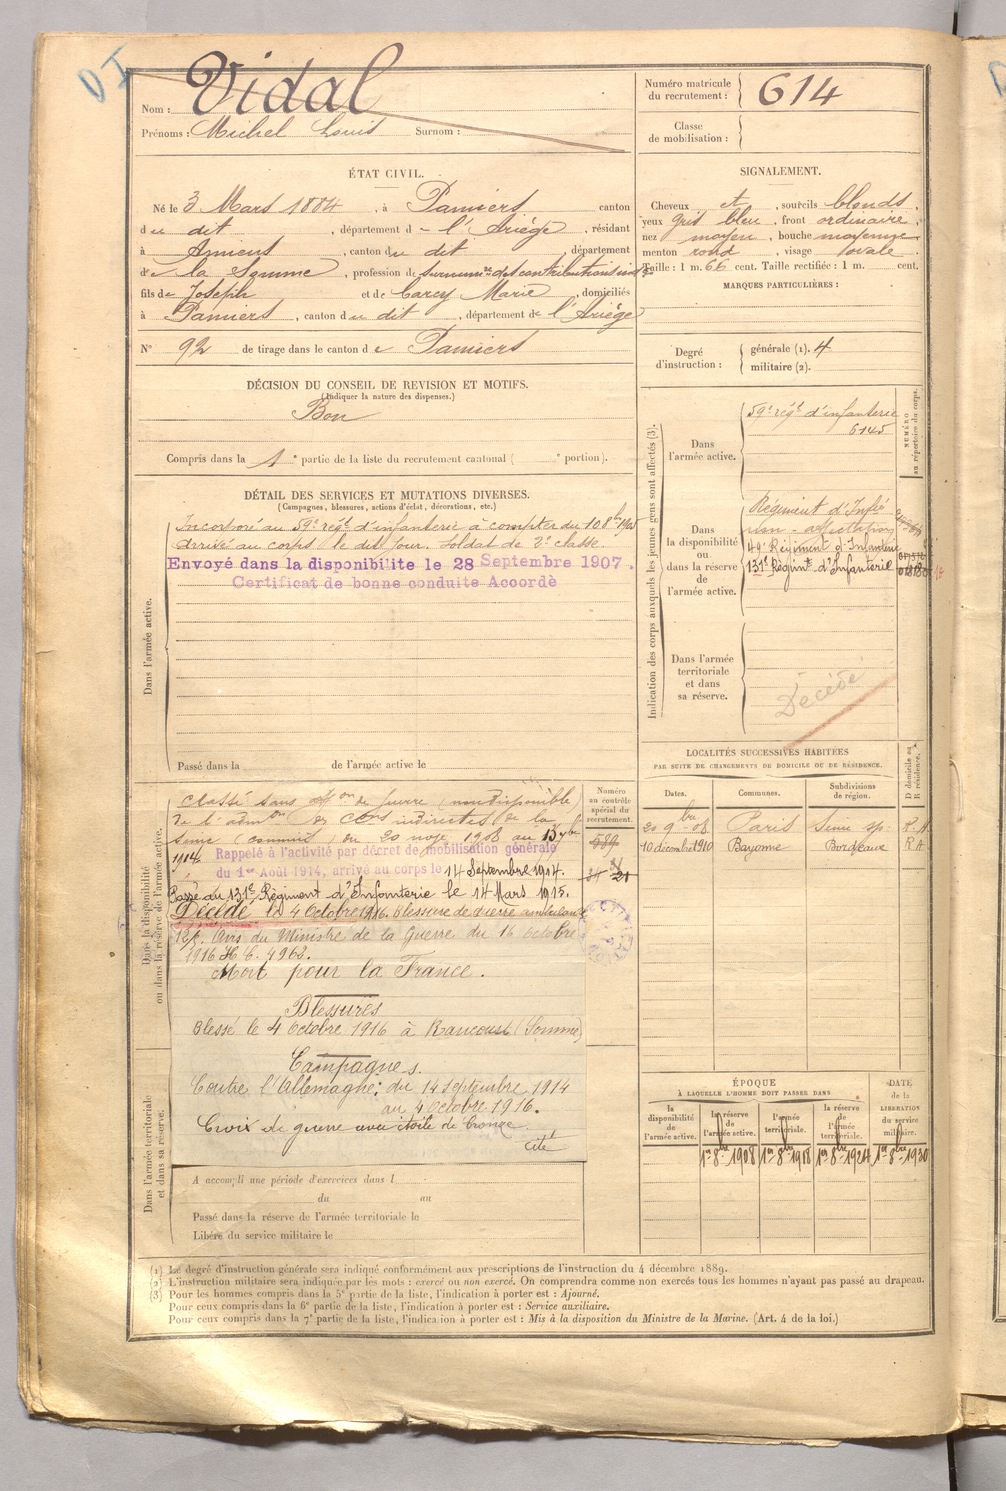 Nom : Vidal
Prénoms : Michel Louis Surnom :
Numéro matricule du recrutement : 614
Classe de mobilisation :
ÉTAT CIVIL.
Né le 3 Mars 1884, à Pamiers canton
du dit, département d - l'Ariège, résidant
à Amiens, canton du dit, département
de la Somme, profession de surnumre des contributions indtes
fils de Joseph et de Carcy Marie, domiciliés
à Pamiers, canton du dit, département de l'Ariège
N° 92 de tirage dans le canton de Pamiers
SIGNALEMENT.
Cheveux et, sourcils blonds,
yeux gris bleu, front ordinaire,
nez moyen, bouche moyenne,
menton rond, visage ovale
Taille : 1 m. 66 cent. Taille rectifiée : 1 m. cent.
MARQUES PARTICULIÈRES :
Degré d'instruction : générale (1). 4
militaire (2).
DÉCISION DU CONSEIL DE REVISION ET MOTIFS.
(Indiquer la nature des dispenses.)
Bon
Compris dans la 1e partie de la liste du recrutement cantonal ( e portion).
DÉTAIL DES SERVICES ET MUTATIONS DIVERSES.
(Campagnes, blessures, actions d'éclat, décorations, etc.)
Dans l'armée active.
Incorporé au 59e régt d'infanterie à compter du 10 8bre 1905
Arrivé au corps le dit jour. Soldat de 2e classe.
Envoyé dans la disponibilite le 28 Septembre 1907.
Certificat de bonne conduite Accordé
Passé dans la de l'armée active le
Indication des corps auxquels les jeunes gens sont affectés (3).
NUMÉRO au répertoire du corps.
Dans l'armée active.
59e régt d'infanterie
6145
Dans la disponibilité ou dans la réserve de l'armée active.
Régiment d'Infie
non-affectation
49e Régiment d'Infanterie
131e Régimt d'Infanterie
Dans l'armée territoriale et dans sa réserve.
Décédé
LOCALITÉS SUCCESSIVES HABITÉES
PAR SUITE DE CHANGEMENTS DE DOMICILE OU DE RÉSIDENCE.
Dates. Communes. Subdivisions de région. D domicile ou R résidence.
20 9bre 08 Paris Seine sp. R.A
10 décembre 1910 Bayonne Bordeaux R A
Dans la disponibilité ou dans la réserve de l'armée active.
Numéro au contrôle spécial du recrutement.
589
Classé sans affon de guerre (non disponible)
de l'admon des Cons indirectes de la
Seine (commis) du 20 nove 1908 au 13
1914. Rappelé à l'activité par décret de mobilisation générale
du 1er Août 1914, arrivé au corps le 14 Septembre 1914.
Passé au 131e Régiment d'Infanterie le 14 Mars 1915.
Décédé le 4 Octobre 1916. Blessure de guerre ambulance
Avis du Ministre de la Guerre du 16 octobre
1916
Mort pour la France.
Blessures
Blessé le 4 Octobre 1916 à Rancourt (Somme)
Campagnes.
Contre l'Allemagne : du 14 septembre 1914
au 4 octobre 1916.
Croix de guerre avec étoile de bronze.
Cité
Dans l'armée territoriale et dans sa réserve.
A accompli une période d'exercices dans l
du au
Passé dans la réserve de l'armée territoriale le
Libéré du service militaire le
ÉPOQUE
À LAQUELLE L'HOMME DOIT PASSER DANS
DATE de la LIBÉRATION du service militaire.
la disponibilité de l'armée active. la réserve de l'armée active. l'armée territoriale. la réserve de l'armée territoriale.
1er 8bre 1908 1er 8bre 1918 1er 8bre 1924 1er 8bre 1930
(1) Le degré d'instruction générale sera indiqué conformément aux prescriptions de l'instruction du 4 décembre 1889.
(2) L'instruction militaire sera indiquée par les mots : exercé ou non exercé. On comprendra comme non exercés tous les hommes n'ayant pas passé au drapeau.
(3) Pour les hommes compris dans la 5e partie de la liste, l'indication à porter est : Ajourné.
Pour ceux compris dans la 6e partie de la liste, l'indication à porter est : Service auxiliaire.
Pour ceux compris dans la 7e partie de la liste, l'indication à porter est : Mis à la disposition du Ministre de la Marine. (Art. 4 de la loi.)